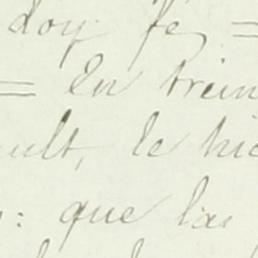 doy fé =
= En trein
ult, le hic
: que las